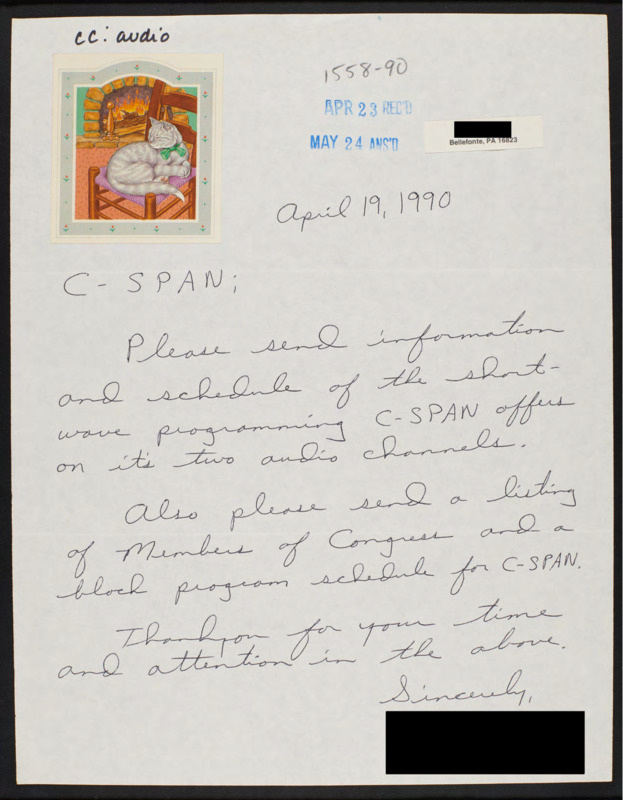 cc: audio
1558-90
APR 23 REC'D
MAY 24 ANS'D
Bellefonte, PA 16823
April 19, 1990
C-SPAN;
Please send information
and schedule of the short-
wave programming C-SPAN offers
on it's two audio channels.
Also please send a listing
of Members of Congress and a
block program schedule for C-SPAN.
Thankyou for your time
and attention in the above.
Sincerely,